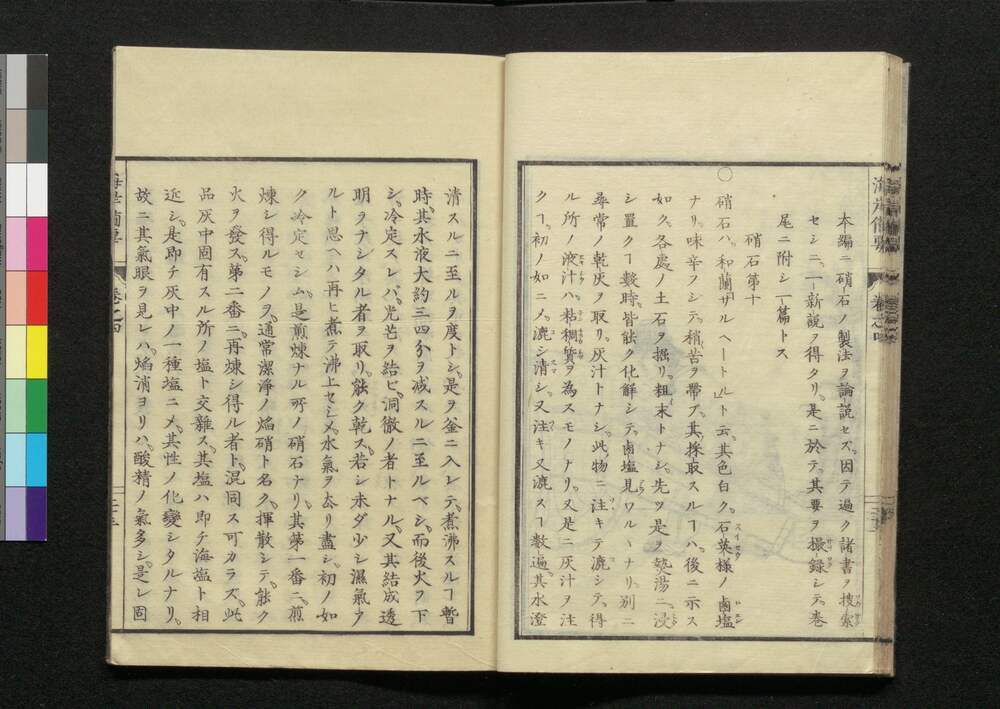 本編ニ硝石ノ製法ヲ論説セズ。因テ遍ク諸書ヲ捜索
セシニ、一新説ヲ得タリ。是ニ於テ。其要ヲ撮録シテ。巻
尾ニ附シ一篇トス
硝石第十
○硝石ハ。和蘭「サルヘートル」ト云。其色白ク。石英様ノ鹵塩
ナリ。味辛フシテ。稍苦ヲ帯ブ。其採取スルヿハ。後ニ示ス
如ク。各處ノ土石ヲ掘リ。粗末トナシ。先ツ是ヲ熱湯ニ。浸
シ置クヿ數時。皆能ク化解シテ。鹵塩見ワルヽナリ。別ニ
尋常ノ乾灰ヲ取リ。灰汁トナシ。此物ニ注キテ漉シテ。得
ル所ノ液汁ハ。粘稠質ヲ為スモノナリ。又是ニ灰汁ヲ注
クヿ。初ノ如ニメ。漉シ清シ。又注キ又漉スヿ數遍。其水澄
海岸備要 巻之四
清スルニ至ルヲ度トシ。是ヲ釜ニ入レテ。煮沸スルヿ暫
時。其水液大約三四分ヲ減スルニ至ルベシ。而後火ヲ下
シ。冷定スレバ。光芒ヲ結ビ。洞徹ノ者トナル。又其結成透
明ヲナシタル者ヲ取リ。能ク乾ス。若シ未ダ少シ濕氣ア
ルト思ヘハ再ヒ煮テ沸上セシメ。水氣ヲ厺リ盡シ。初ノ如
ク冷定セシム。是煎煉ナル所ノ硝石ナリ。其第一番ニ。煎
煉シ得ルモノヲ。通常潔淨ノ焔硝ト名ク。揮散シテ。能ク
火ヲ發ス。第二番ニ。再煉シ得ル者ト。混同ス可カラズ。此
品灰中固有スル所ノ塩ト交雜ス。其塩ハ即チ海塩ト相
近シ。是即チ灰中ノ一種塩ニメ。其性ノ化變シタルナリ。
故ニ其氣眼ヲ見レハ。焔消ヨリハ。酸精ノ氣多シ。是レ固